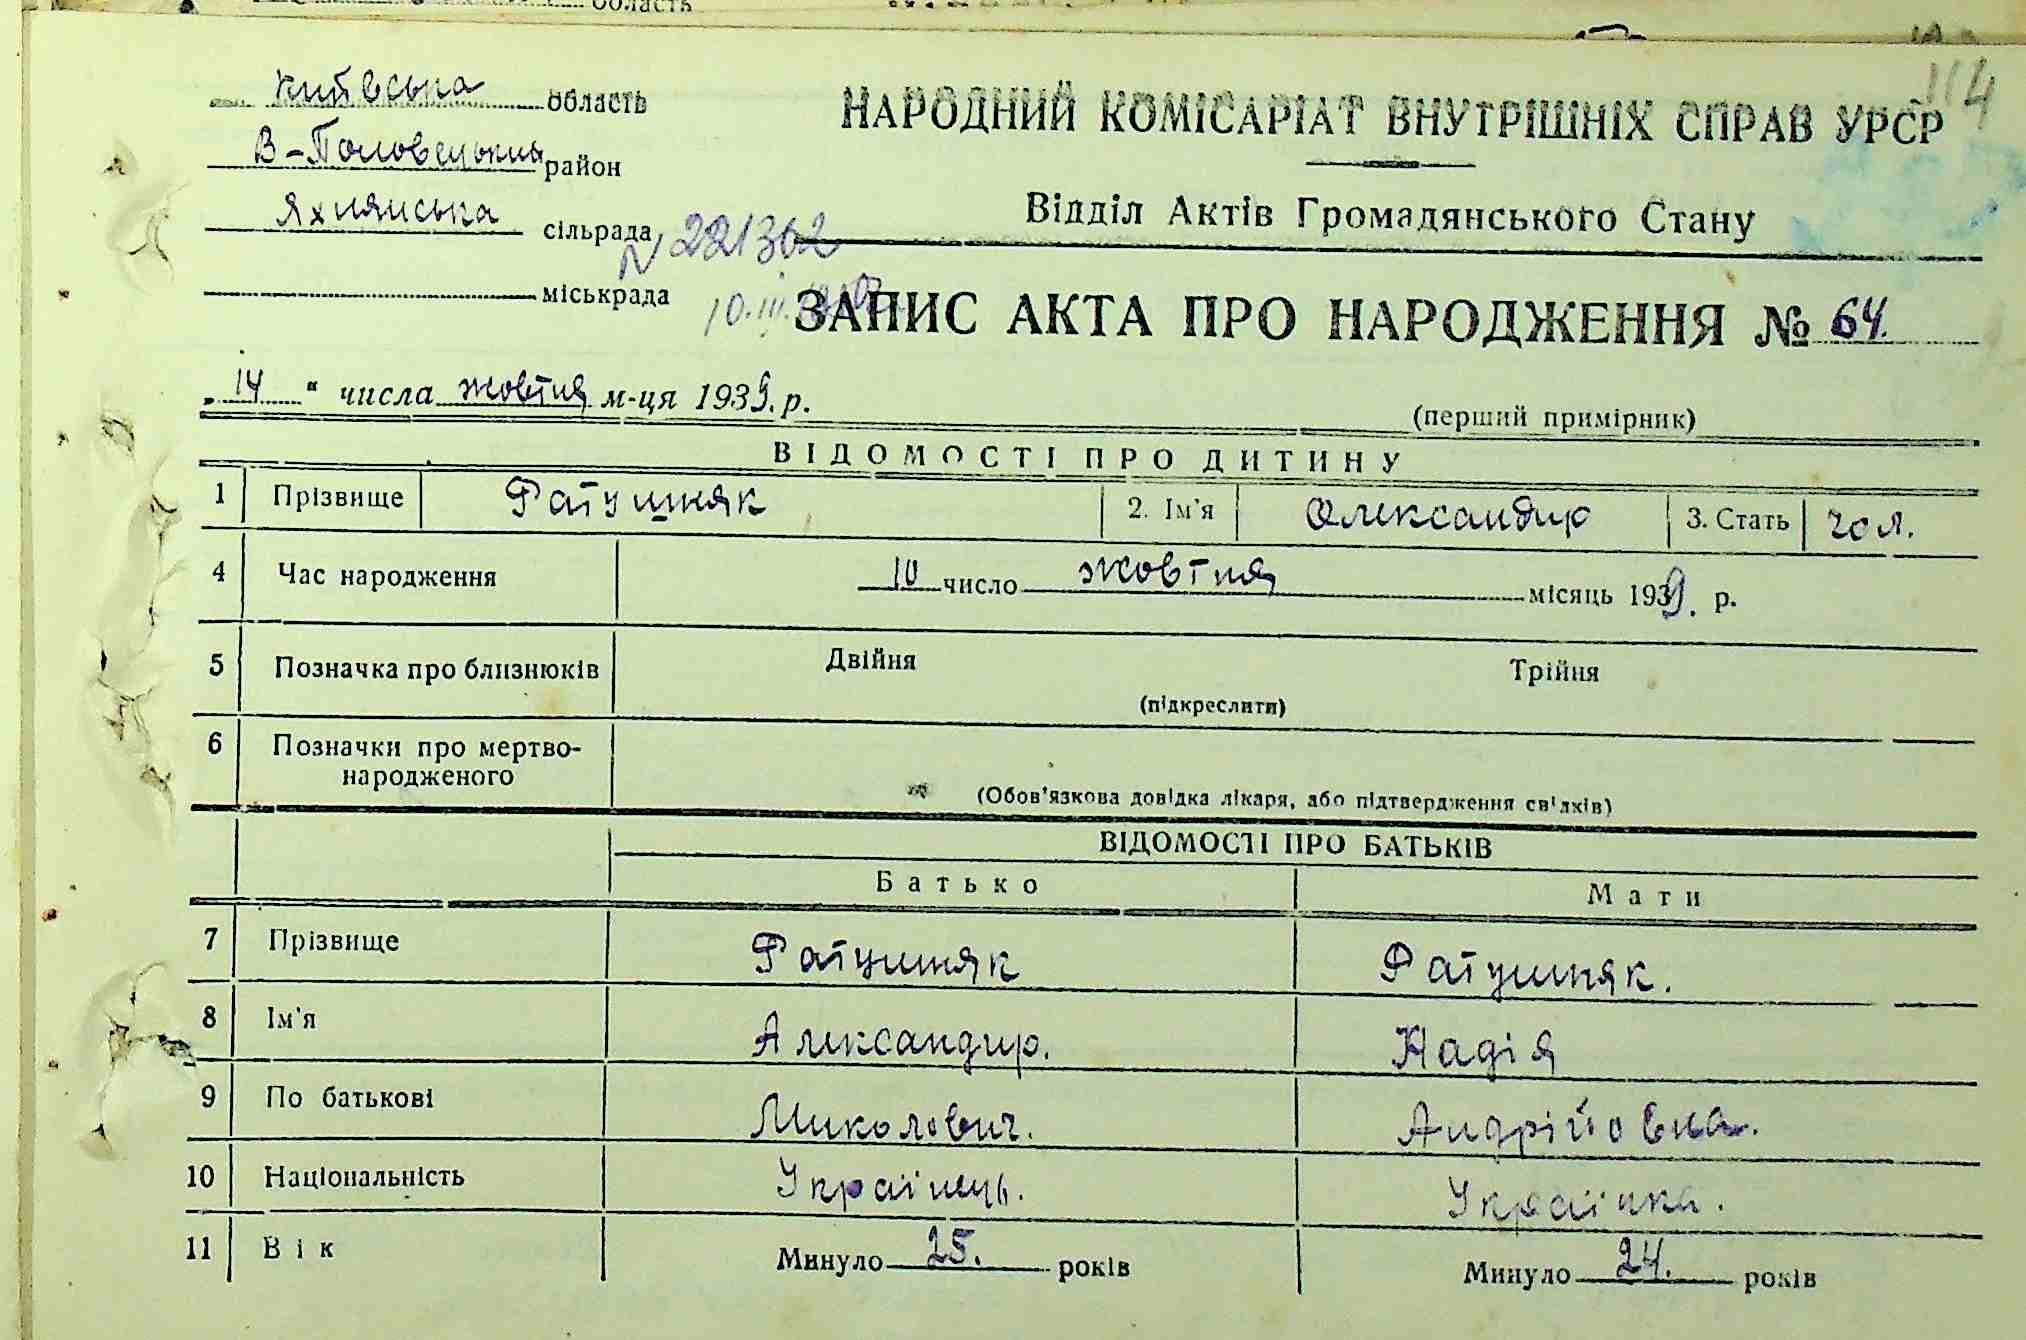 область
114
Київська область
НАРОДНИЙ КОМІСАРІАТ ВНУТРІШНІХ СПРАВ УРСР
В-Половецький район
Відділ Актів Громадянського Стану
Яхнянська сільрада
N 221302
міськрада
10.III.
ЗАПИС АКТА ПРО НАРОДЖЕННЯ № 64.
„14“ числа жовтня м-ця 1939. р.
(перший примірник)
ВІДОМОСТІ ПРО ДИТИНУ
1 Прізвище Ратушняк 2. Ім'я Олександир 3. Стать чол.
4 Час народження 10 число жовтня місяць 1939. р.
5 Позначка про близнюків Двійня Трійня
(підкреслити)
6 Позначки про мертво-
народженого
(Обов'язкова довідка лікаря, або підтвердження свідків)
ВІДОМОСТІ ПРО БАТЬКІВ
Батько Мати
7 Прізвище Ратушняк Ратушняк.
8 Ім'я Александир. Надія
9 По батькові Миколович. Андрійовна.
10 Національність Українець. Українка.
11 Вік Минуло 25. років Минуло 24. років